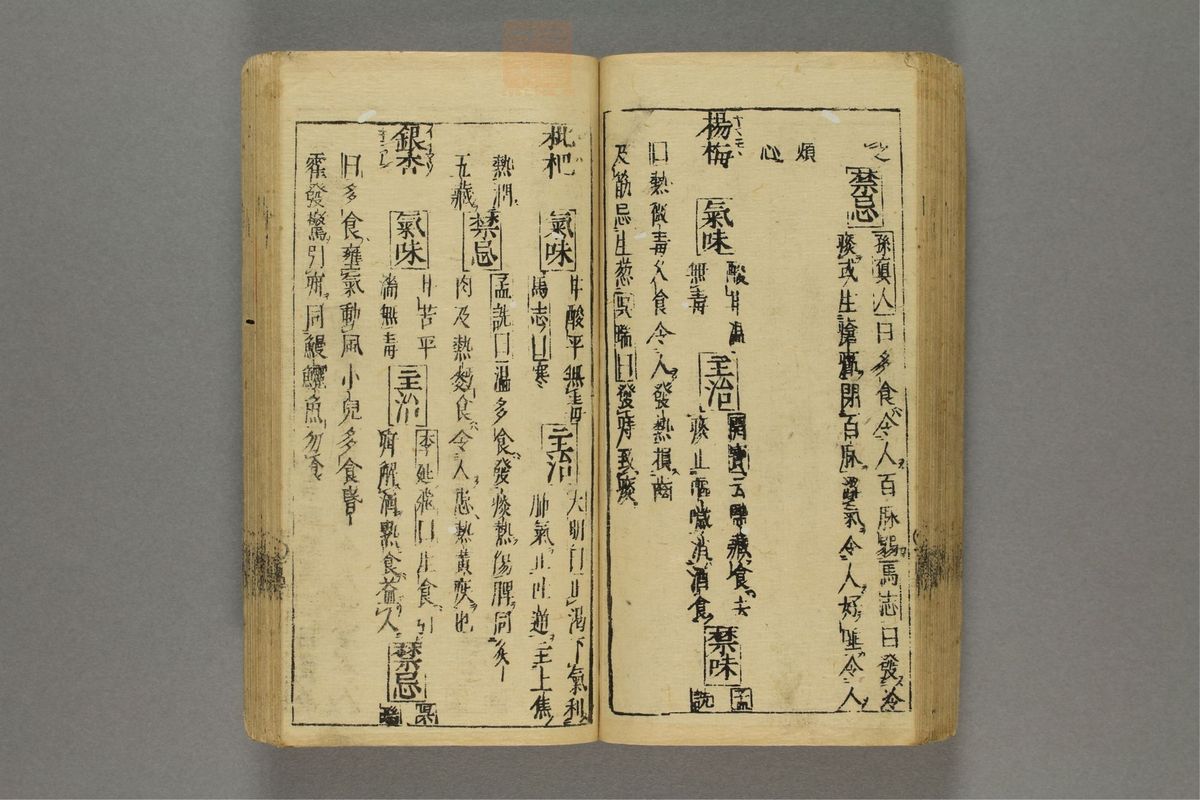 禁忌 孫真人曰多食令人百脉弱馬志曰發冷
痰或生瘡癤閉百脉澀氣令人好唾令人
煩
心
楊梅 氣味 酸甘溫
無毒
主治 開寶云鹽藏食去
痰止嘔噦消酒食
禁味 孟
詵
曰熱微毒久食令人發熱損齒
及筋忌生葱同食 曰發瘡致痰
枇杷 氣味 甘酸平無毒
馬志曰寒
主治 大明曰止渴下氣利
肺氣止吐逆主上焦
熱潤
五藏
禁忌 孟詵曰溫多食發痰熱傷脾同炙
肉及熱麪食令人患熱黃疾也
銀杏 氣味 甘苦平
濇無毒
主治 李廷飛曰生食引
疳解酒熟食益人
禁忌
曰多食壅氣動風小兒多食昏
霍發驚引疳同鰻鱺魚勿食